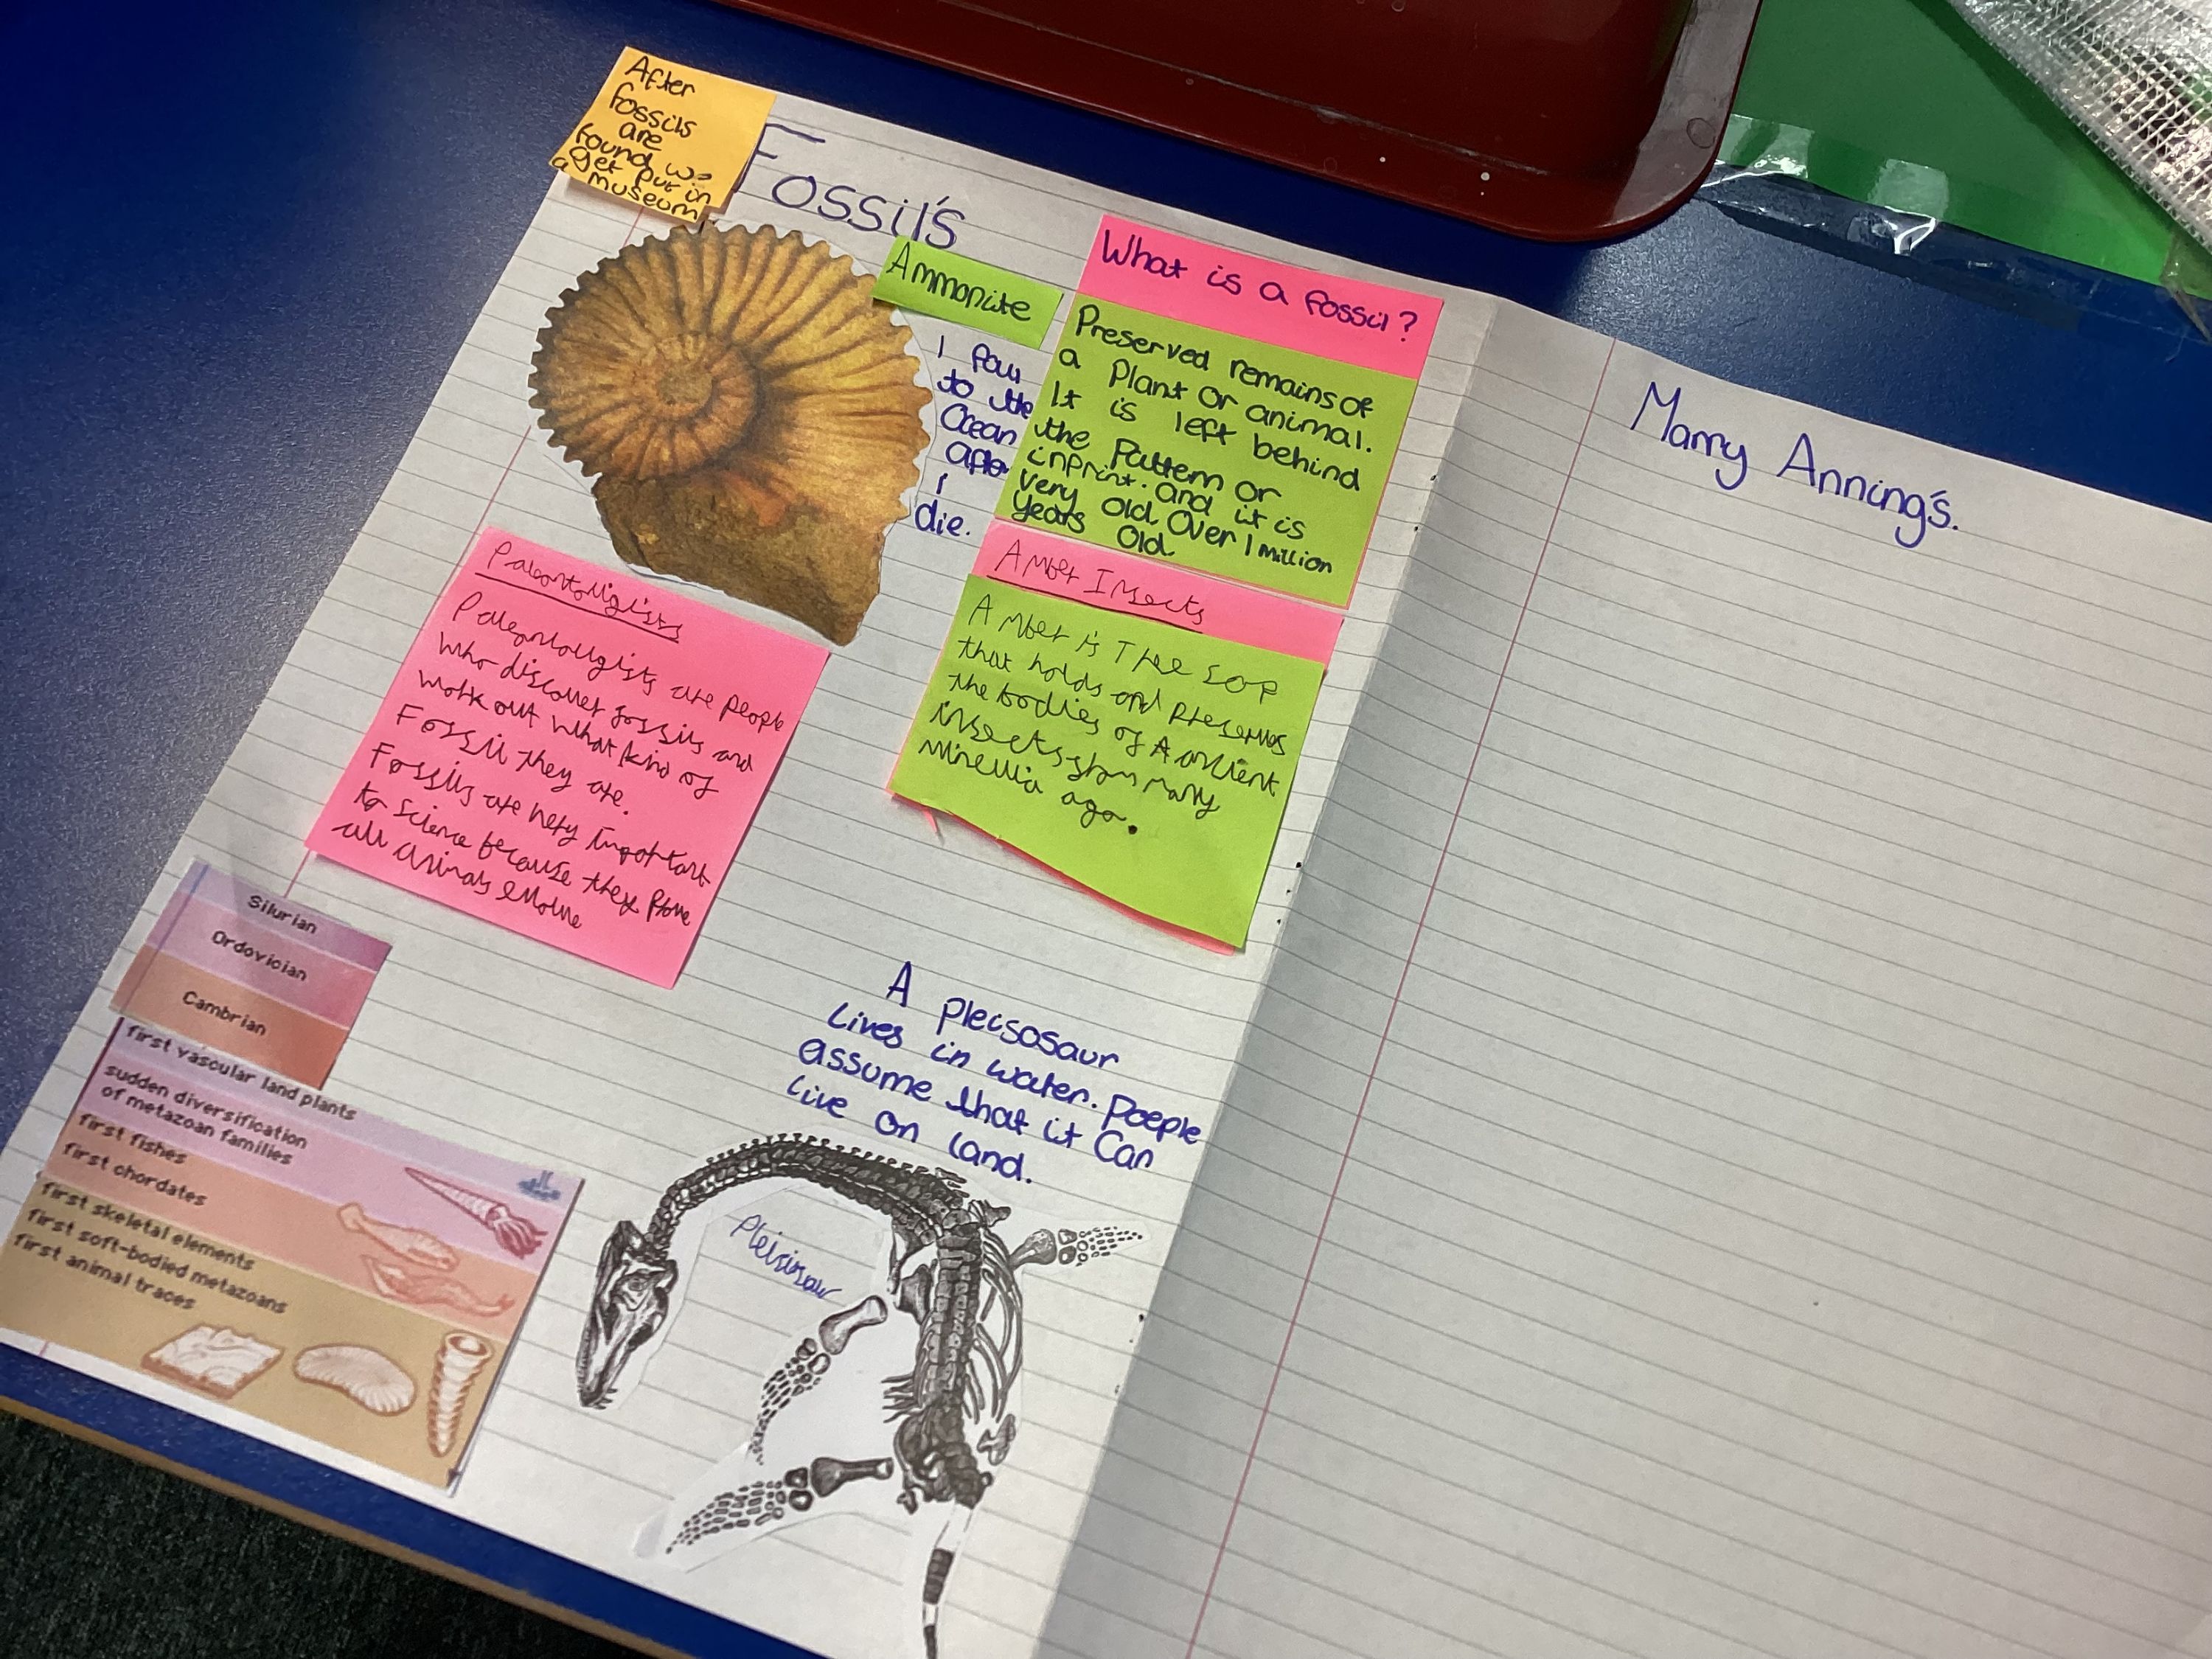 After
fossils
are
found we
get put in
a museum
Fossil's
Ammonite
I fall
to the
Ocean
after
I
die.
What is a fossil?
Preserved remains of
a Plant or animal.
It is left behind
the Pattern or
inprint. and it is
very old. Over 1 million
years old.
Paleontoligists
Paleontoligists are people
who discover fossils and
work out what kind of
Fossil they are.
Fossils are very important
to science because they Prove
all evolve
Amber Insects
Amber is Tree Sap
that holds and Preserves
the bodies of Ancient
insects from many
ago.
Silurian
Ordovician
Cambrian
first vascular land plants
sudden diversification
of metazoan families
first fishes
first chordates
first skeletal elements
first soft-bodied metazoans
first animal traces
A pleisosaur
Lives in water. Poeple
assume that it Can
Live on land.
Pleisisaur
Marry Anning's.